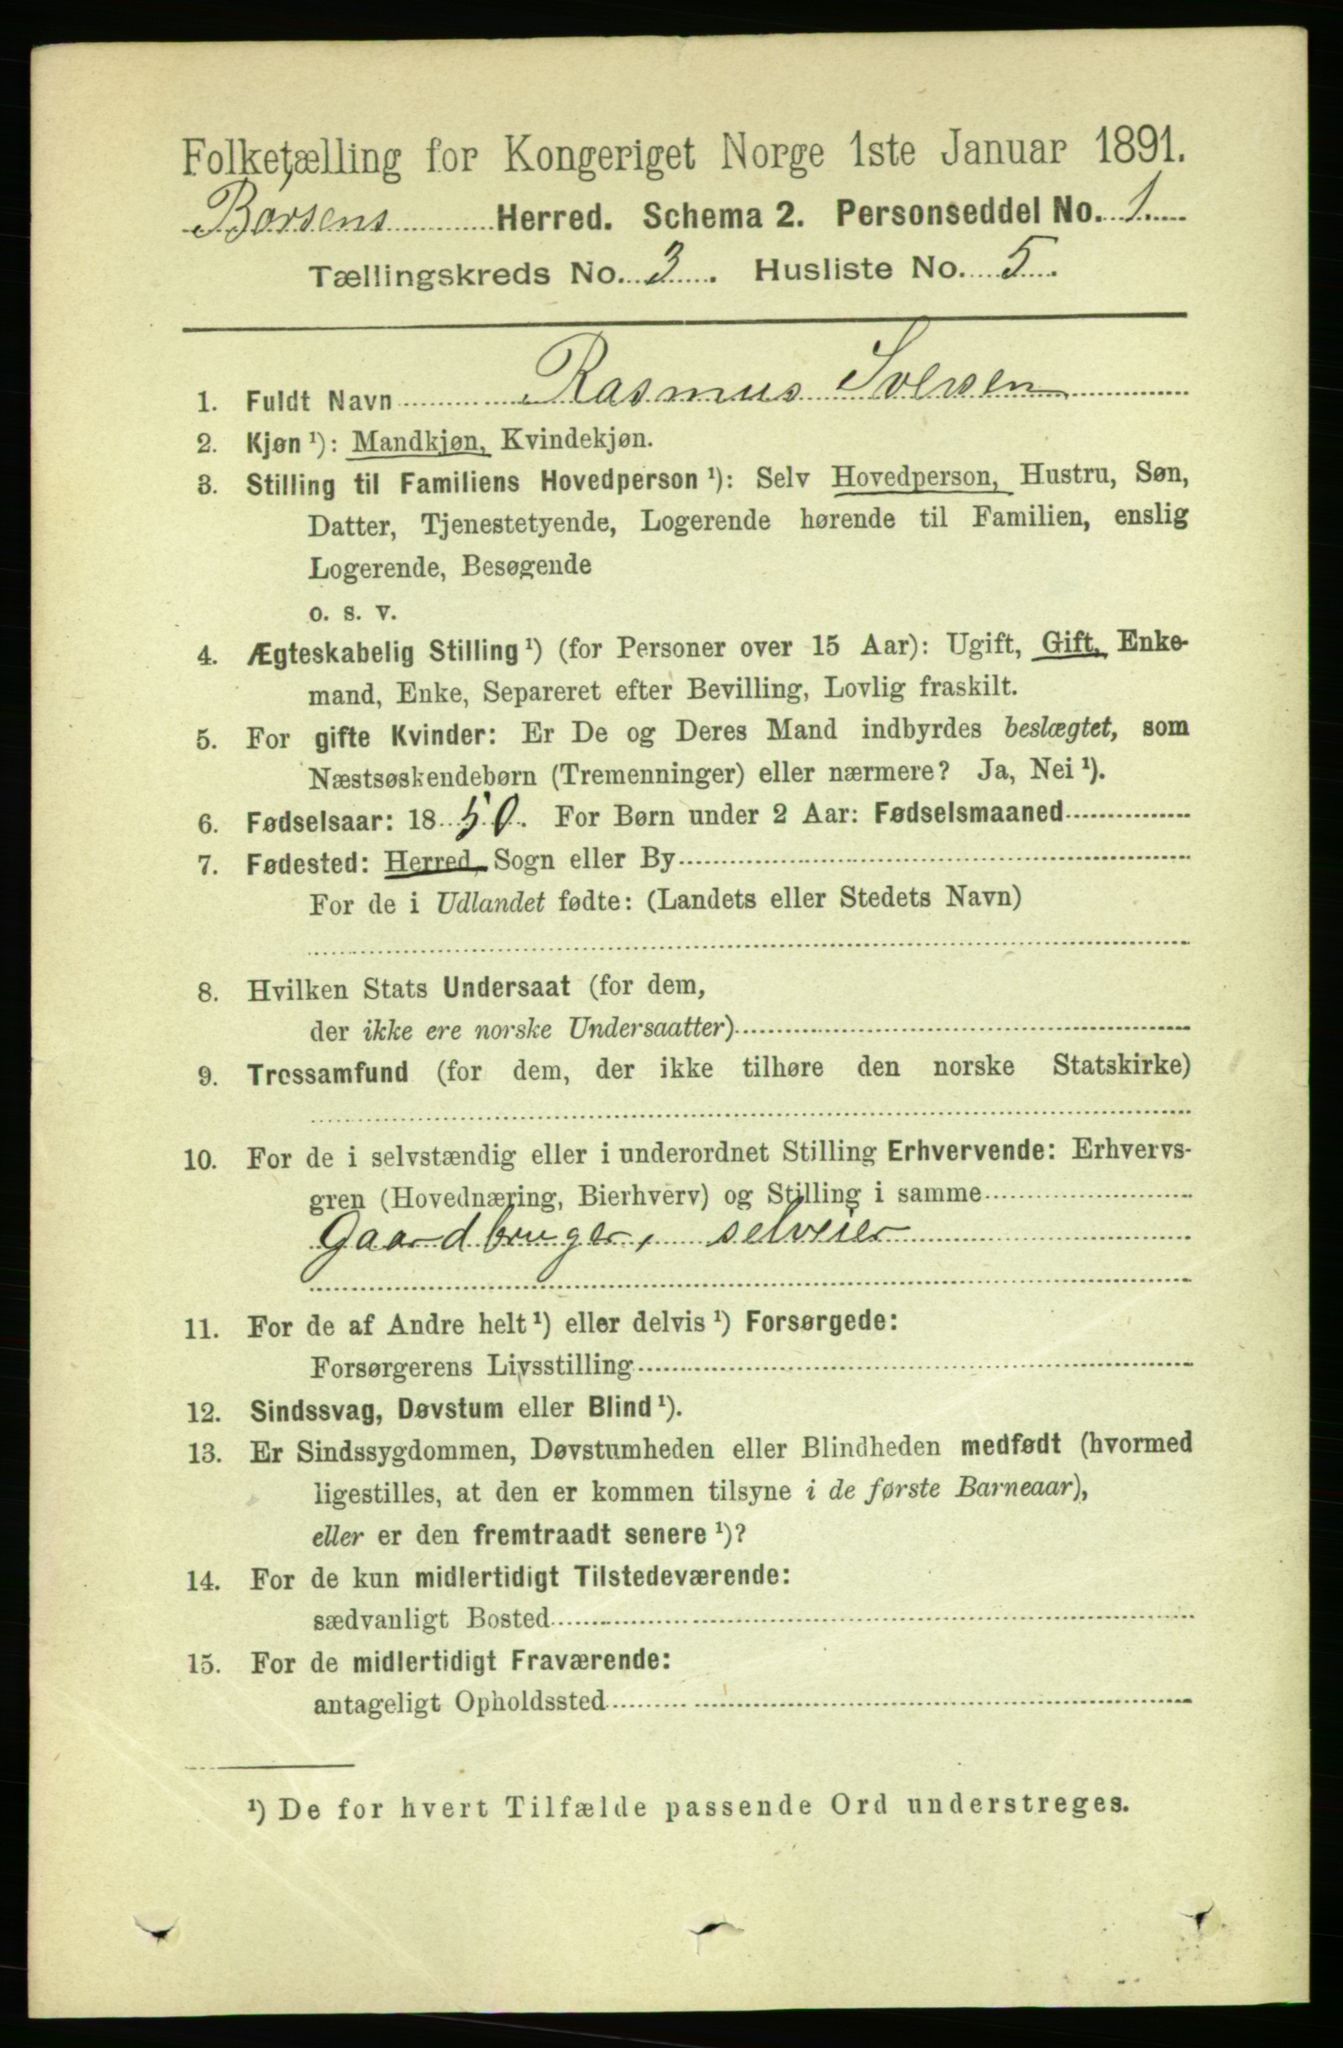 Folketælling for Kongeriget Norge 1ste Januar 1891.
Børsens Herred. Schema 2. Personseddel No. 1.
Tællingskreds No. 3. Husliste No. 5.
1. Fuldt Navn Rasmus Iversen
2. Kjøn ¹): Mandkjøn, Kvindekjøn.
3. Stilling til Familiens Hovedperson ¹): Selv Hovedperson, Hustru, Søn,
Datter, Tjenestetyende, Logerende hørende til Familien, enslig
Logerende, Besøgende
o. s. v.
4. Ægteskabelig Stilling ¹) (for Personer over 15 Aar): Ugift, Gift, Enke-
mand, Enke, Separeret efter Bevilling, Lovlig fraskilt.
5. For gifte Kvinder: Er De og Deres Mand indbyrdes beslægtet, som
Næstsøskendebørn (Tremenninger) eller nærmere? Ja, Nei ¹).
6. Fødselsaar: 1850. For Børn under 2 Aar: Fødselsmaaned
7. Fødested: Herred, Sogn eller By
For de i Udlandet fødte: (Landets eller Stedets Navn)
8. Hvilken Stats Undersaat (for dem,
der ikke ere norske Undersaatter)
9. Trossamfund (for dem, der ikke tilhøre den norske Statskirke)
10. For de i selvstændig eller i underordnet Stilling Erhvervende: Erhvervs-
gren (Hovednæring, Bierhverv) og Stilling i samme
Gaardbruger, selveier
11. For de af Andre helt ¹) eller delvis ¹) Forsørgede:
Forsørgerens Livsstilling
12. Sindssvag, Døvstum eller Blind ¹).
13. Er Sindssygdommen, Døvstumheden eller Blindheden medfødt (hvormed
ligestilles, at den er kommen tilsyne i de første Barneaar),
eller er den fremtraadt senere ¹)?
14. For de kun midlertidigt Tilstedeværende:
sædvanligt Bosted
15. For de midlertidigt Fraværende:
antageligt Opholdssted
¹) De for hvert Tilfælde passende Ord understreges.